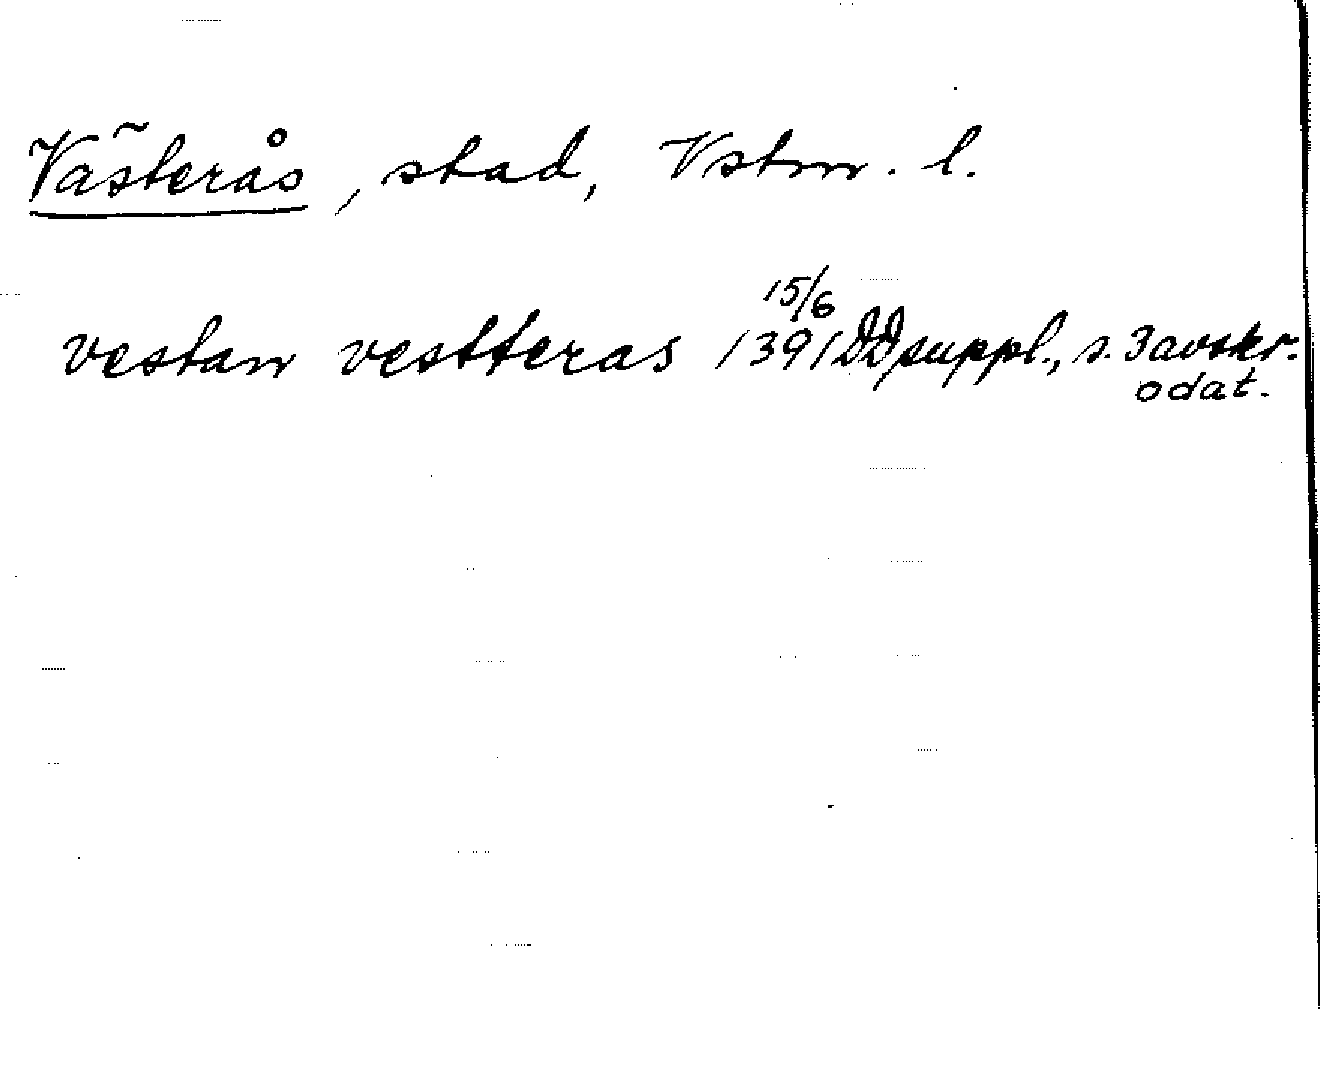 Västerås, stad, Vstm. l.
15/6
vestan vestteras 1391 DD suppl., s. 3 avskr.
odat.